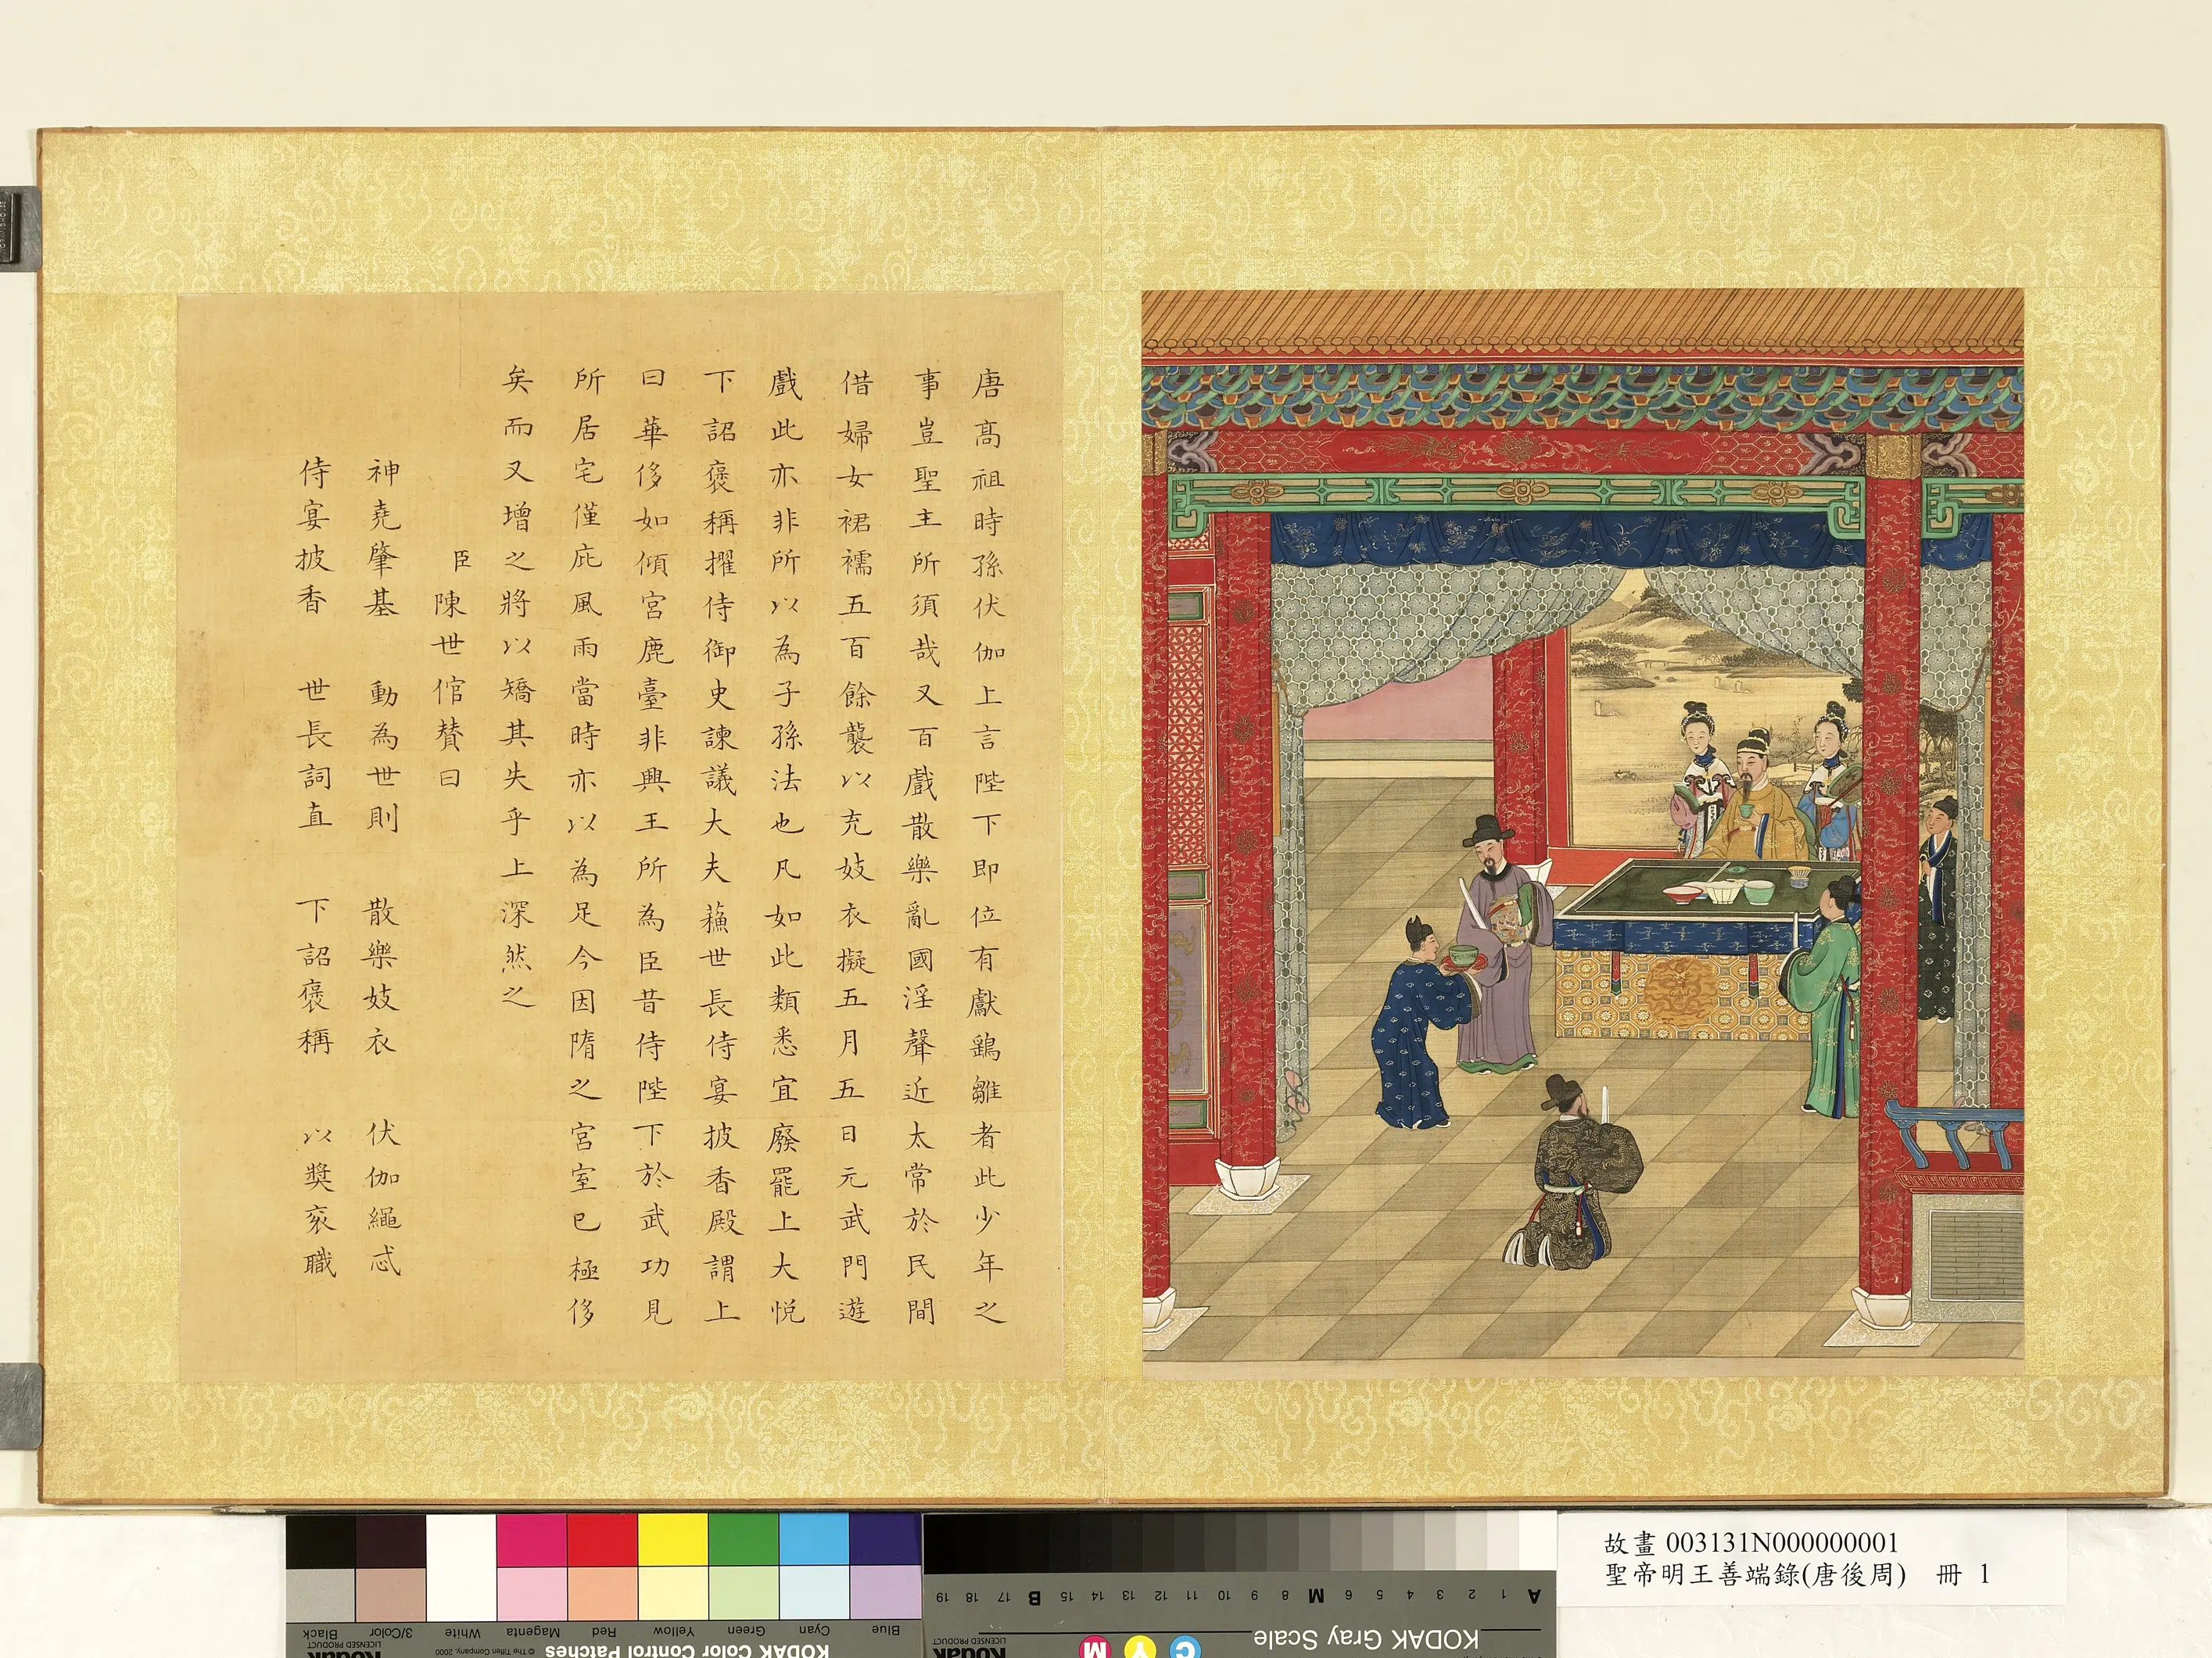 唐高祖時孫伏伽上言陛下即位有獻鷂雛者此少年之
事豈聖主所須哉又百戲散樂亂國淫聲近太常於民間
借婦女裙襦五百餘襲以充妓衣擬五月五日元武門遊
戲此亦非所以為子孫法也凡如此類悉宜廢罷上大悅
下詔褒稱擢侍御史諫議大夫蘓世長侍宴披香殿謂上
曰華侈如傾宮鹿臺非興王所為臣昔侍陛下於武功見
所居宅僅庇風雨當時亦以為足今因隋之宮室已極侈
矣而又增之將以矯其失乎上深然之
臣陳世倌贊曰
神堯肇基 動為世則 散樂妓衣 伏伽繩忒
侍宴披香 世長詞直 下詔褒稱 以獎袞職
故畫 003131N000000001
聖帝明王善端錄(唐後周) 冊 1
Black 3/Color White Magenta Red Yellow Green Cyan Blue
LICENSED PRODUCT © The Tiffen Company, 2000
Kodak KODAK Color Control Patches
19 18 17 B 15 14 13 12 11 10 9 8 M 6 5 4 3 2 1 A
KODAK Gray Scale
Kodak LICENSED PRODUCT
C Y M